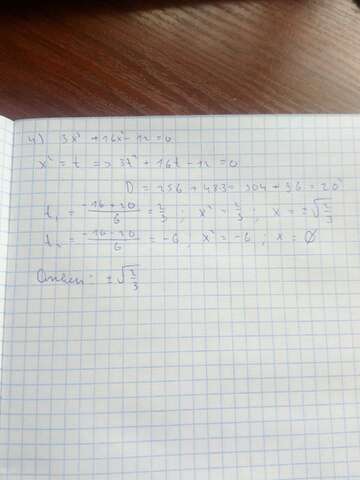 4) 3x⁴ + 16x² - 12 = 0
x² = t => 3t² + 16t - 12 = 0
D = 256 + 48·3 = 304 + 96 = 20²
t₁ = (-16 + 20)/6 = 2/3 ; x² = 2/3 ; x = ±√(2/3)
t₂ = (-16 - 20)/6 = -6 ; x² = -6 ; x = ∅
Ответ: ±√(2/3)